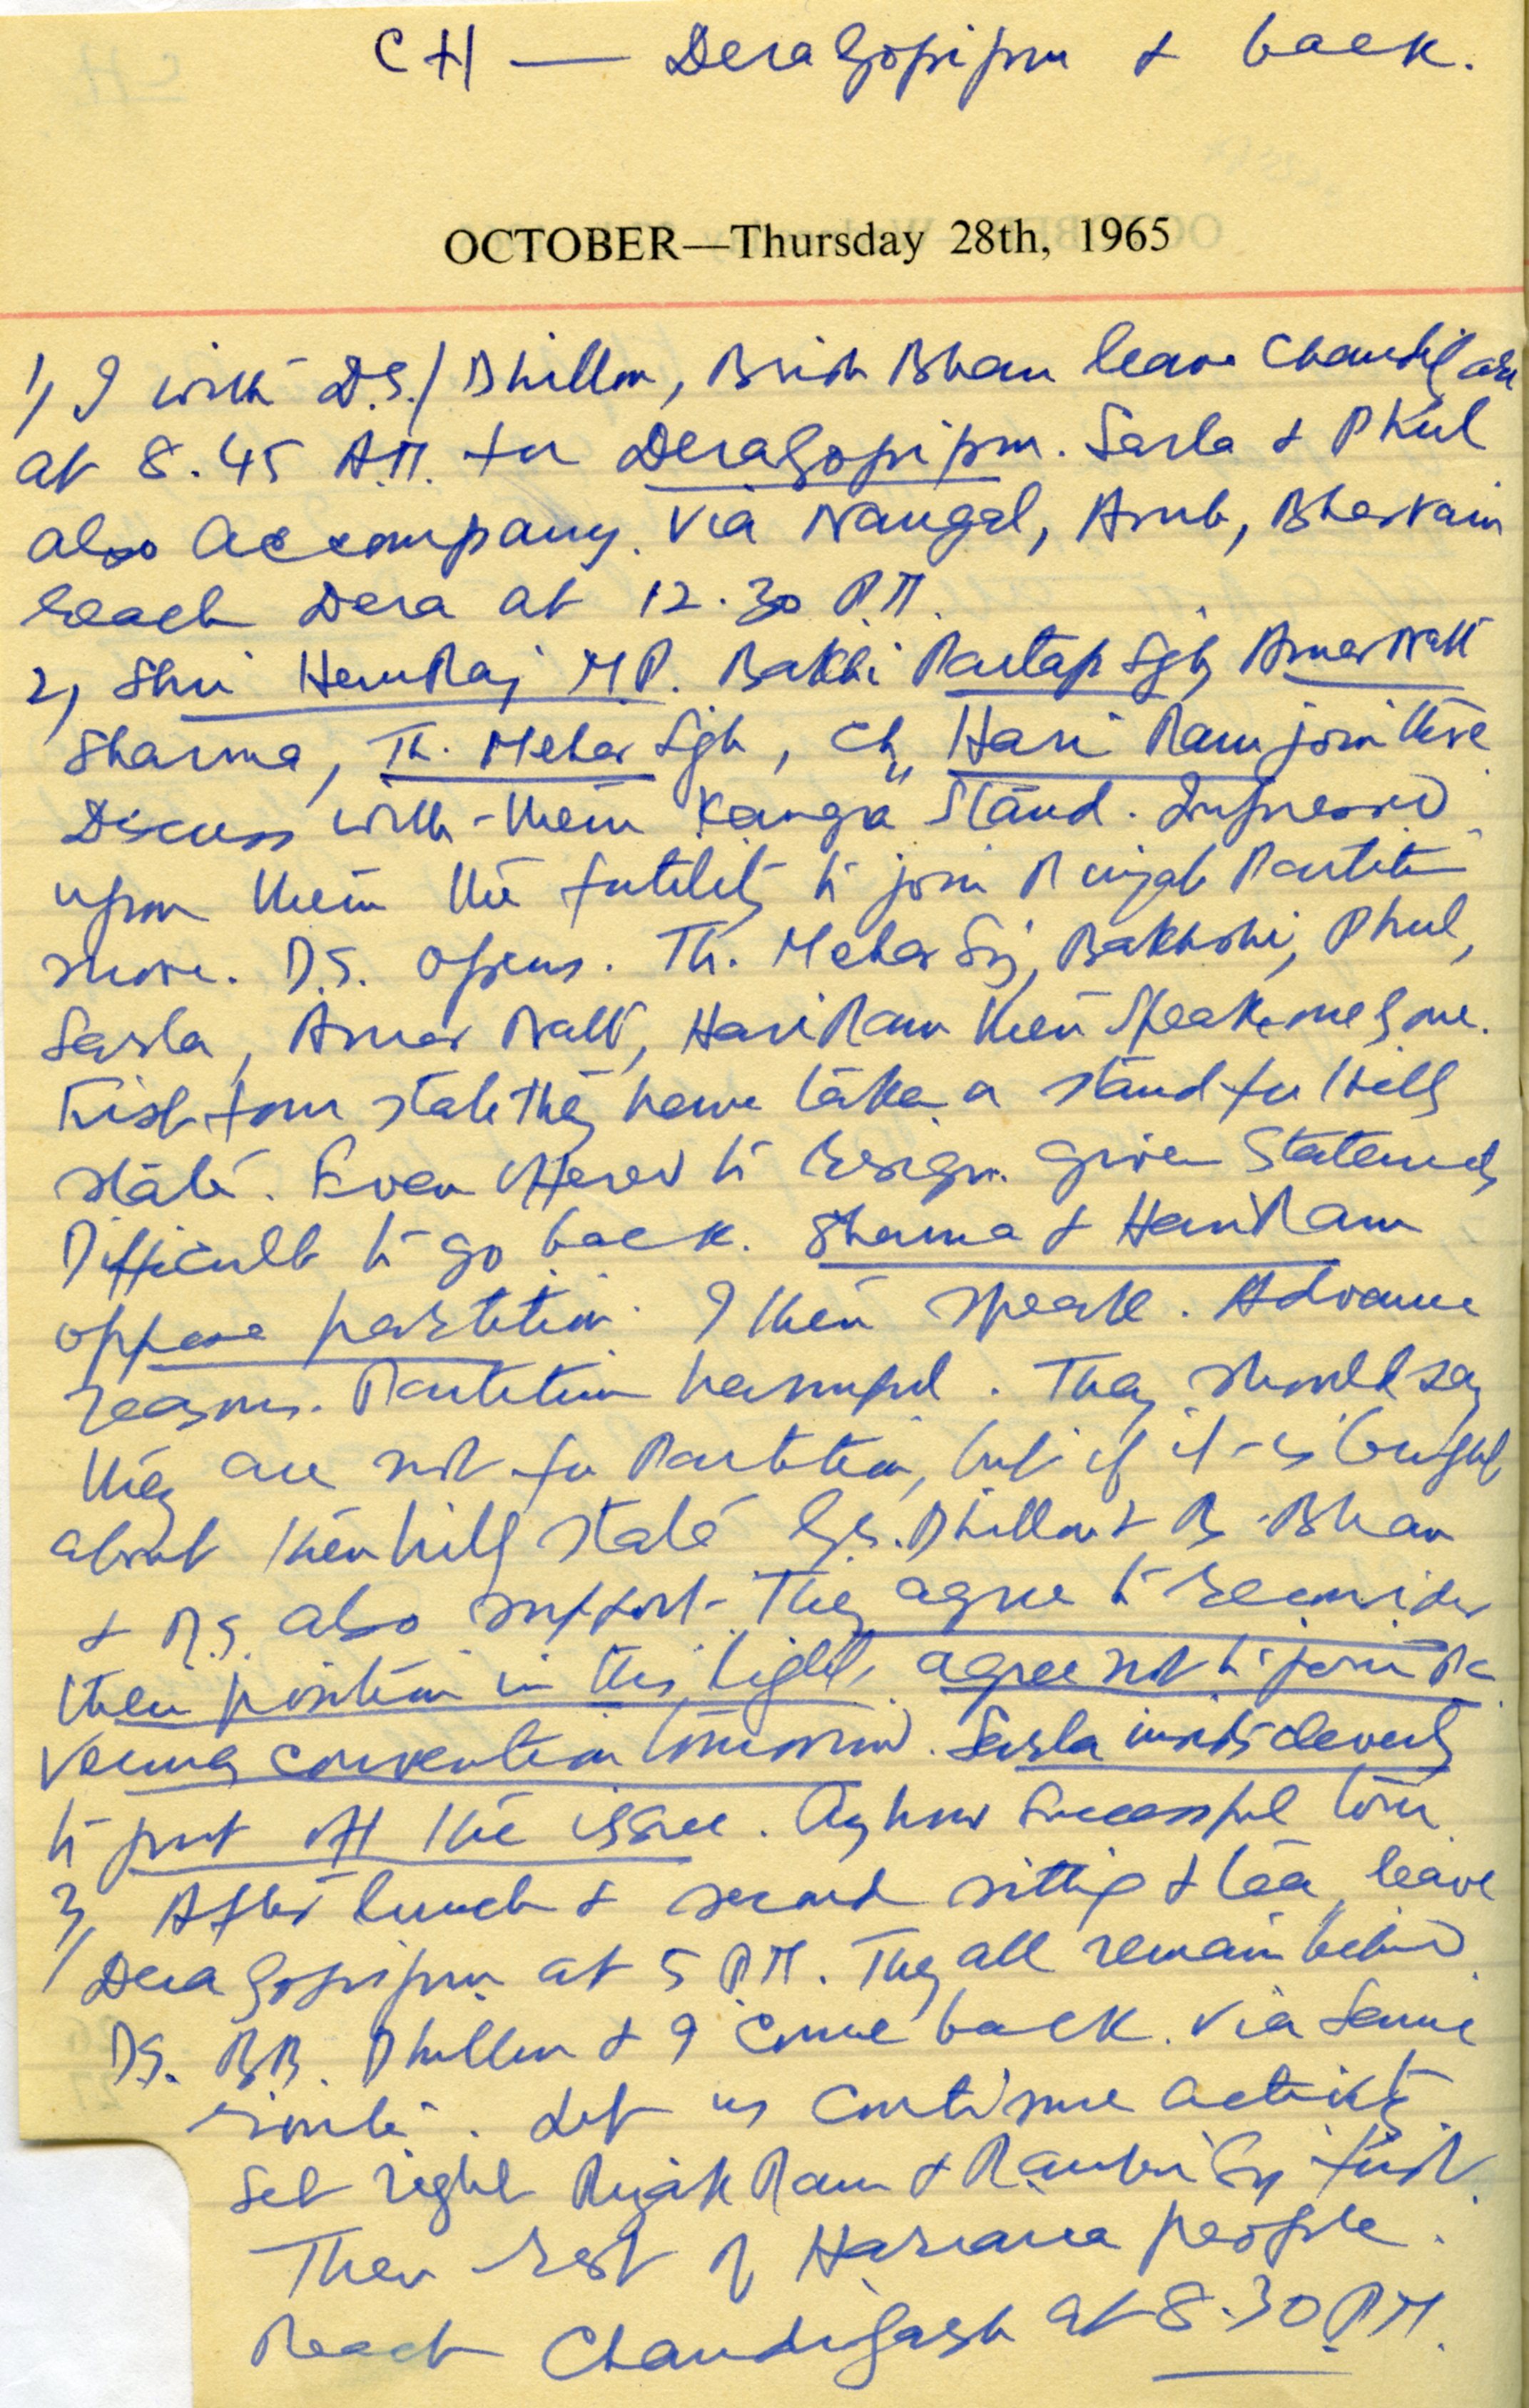 CH — Dera Gopipur & back.
OCTOBER—Thursday 28th, 1965
1) I with D.S./ Dhillon, Brish Bhan leave Chandigarh
at 8.45 A.M. for Dera Gopipur. Sarla & Phul
also accompany. Via Nangal, Amb, Bharvain
reach Dera at 12.30 P.M.
2) Shri Hem Raj M.P. Bakhi Partap Sgh, Amar Nath
Sharma, Th. Mehar Sgh, Ch. Hari Ram join there
Discuss with them "Kangra" Stand. Impressed
upon them the futility to join Punjab Partition
move. D.S. opens. Th. Mehar Sg, Bakhshi, Phul,
Sarla, Amar Nath, Hari Ram then speak one by one.
First four state they have taken a stand for Hill
state. Even offered to resign. Given Statements
Difficult to go back. Sharma & Hari Ram
oppose partition. I then speak. Advance
reasons. Partition harmful. They should say
they are not for Partition, but if it is brought
about then hill state G.S. Dhillon & B. Bhan
& D.S. also support. They agree to reconsider
their position in this light, agree not to join
Verma convention tomorrow. Sarla cleverly
to put off the issue. Anyhow Successful tour
3) After lunch & second sitting & tea, leave
Dera Gopipur at 5 P.M. They all remain behind
DS. BB. Dhillon & I come back. Via Same
route. Let us continue activity
Set right Rizak Ram & Ranbir Sg first.
Then rest of Hariana people.
Reach Chandigarh at 8.30 P.M.